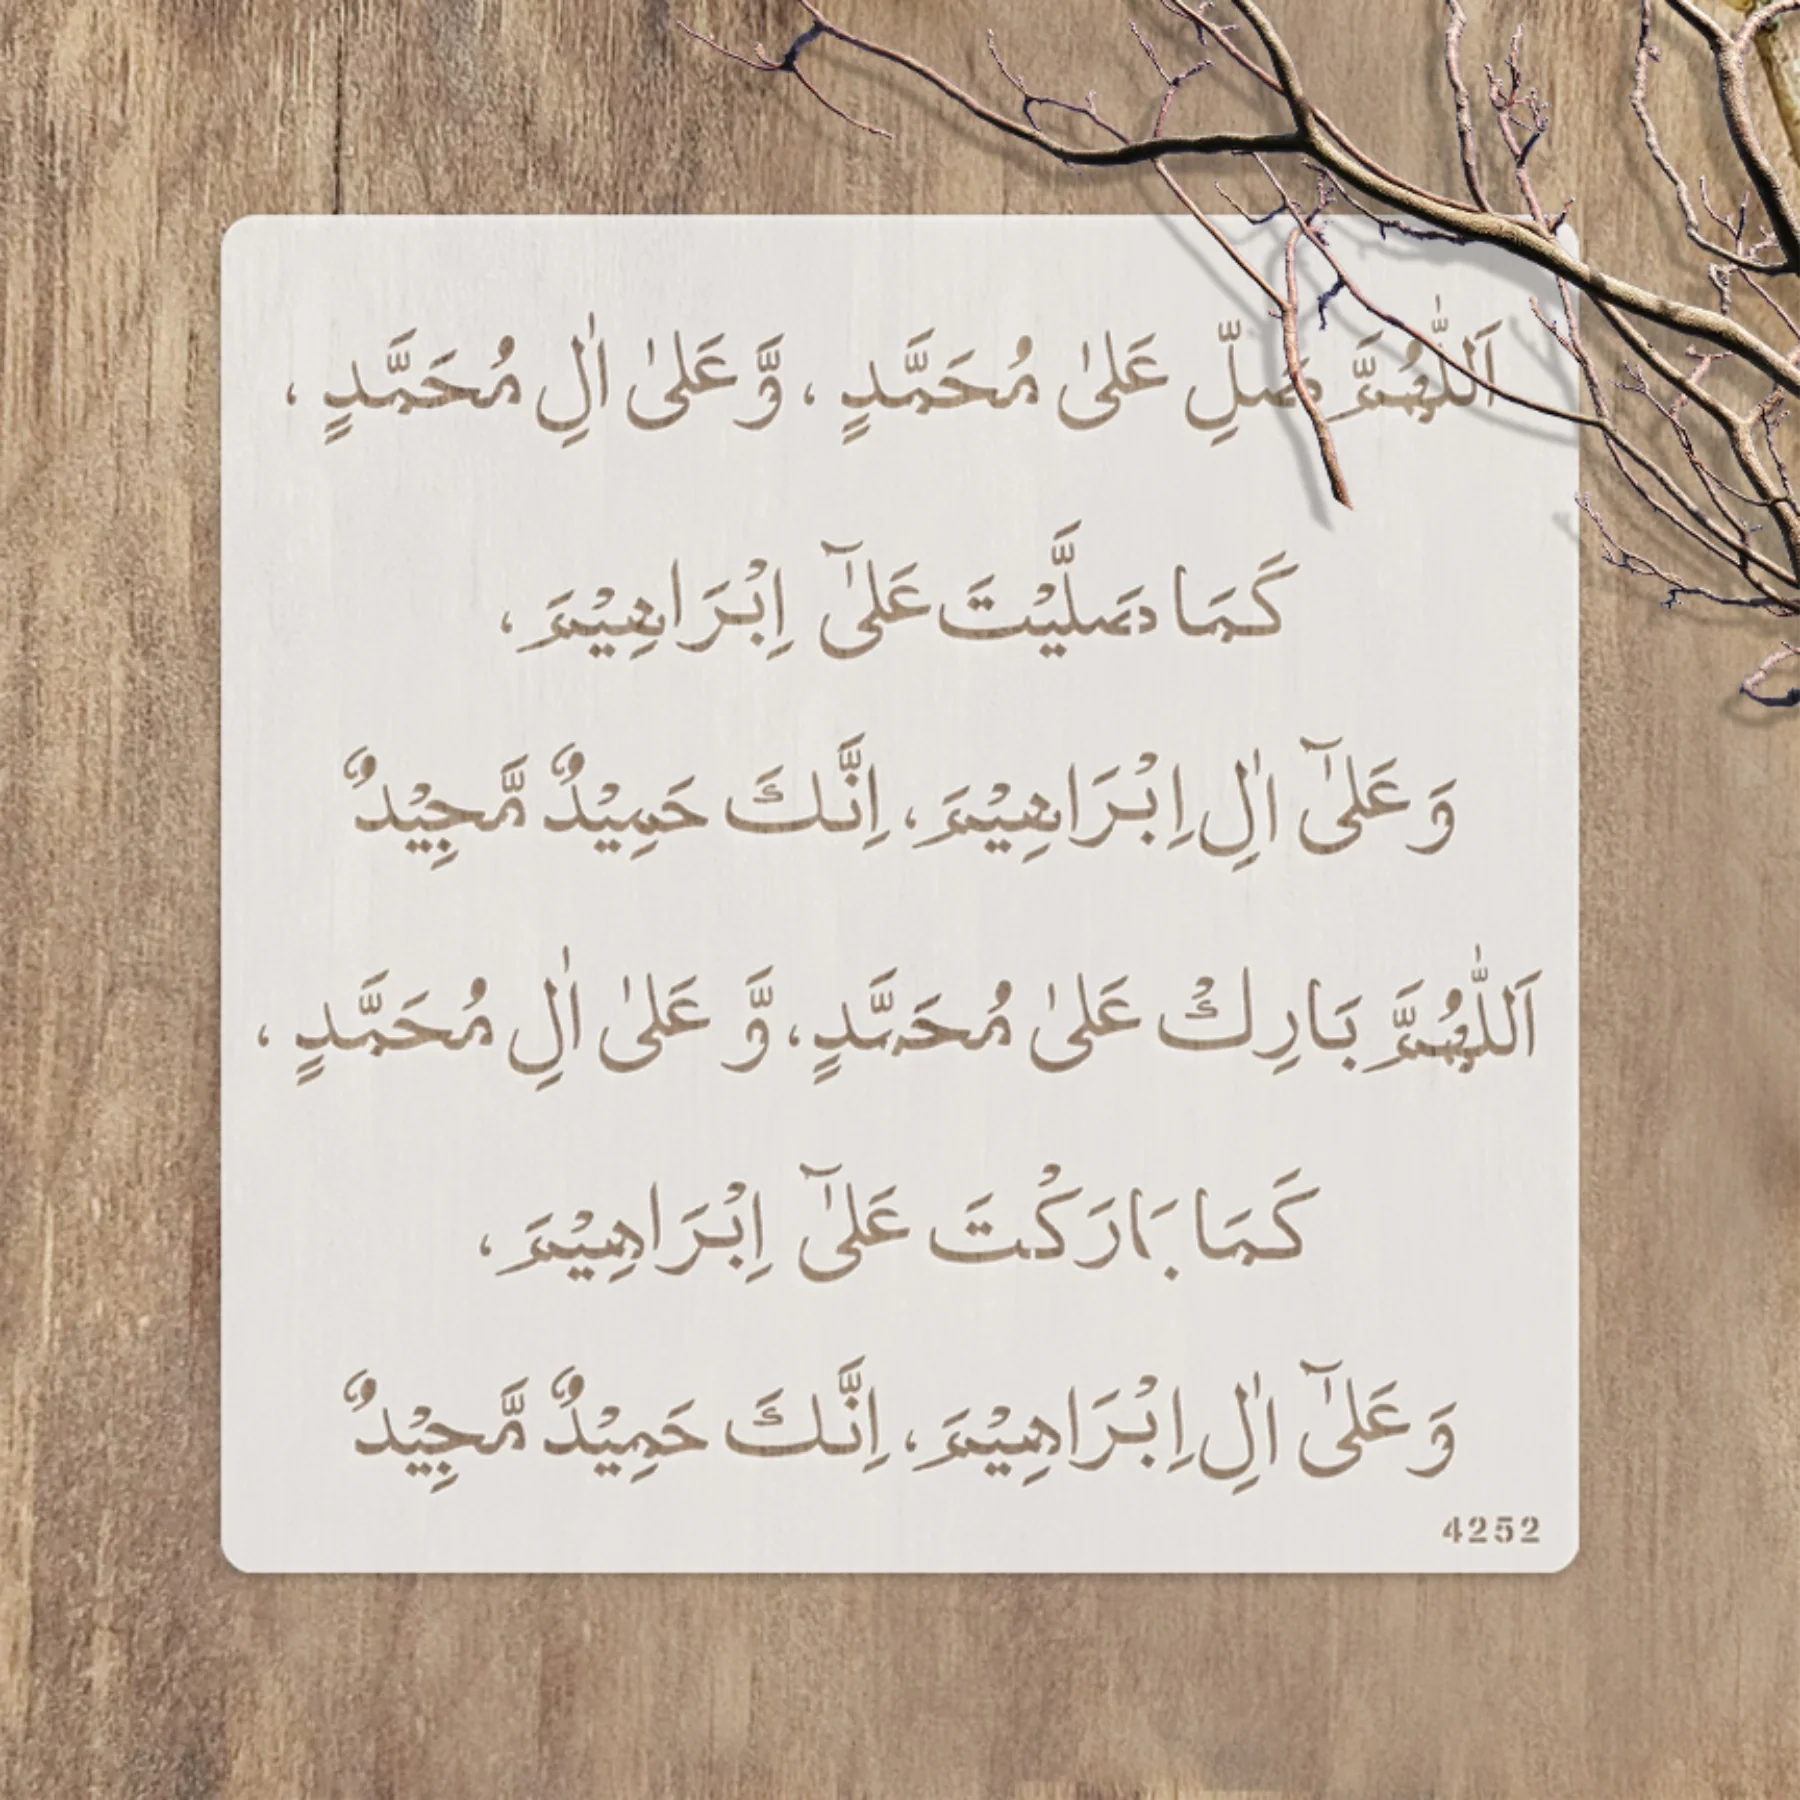 اَللّٰهُمَّ صَلِّ عَلىٰ مُحَمَّدٍ ، وَّ عَلىٰ اٰلِ مُحَمَّدٍ ،
كَمَا صَلَّيْتَ عَلىٰٓ اِبْرَاهِيْمَ ،
وَ عَلىٰٓ اٰلِ اِبْرَاهِيْمَ ، اِنَّكَ حَمِيْدٌ مَّجِيْدٌ
اَللّٰهُمَّ بَارِكْ عَلىٰ مُحَمَّدٍ ، وَّ عَلىٰ اٰلِ مُحَمَّدٍ ،
كَمَا بَارَكْتَ عَلىٰٓ اِبْرَاهِيْمَ ،
وَ عَلىٰٓ اٰلِ اِبْرَاهِيْمَ ، اِنَّكَ حَمِيْدٌ مَّجِيْدٌ
4252